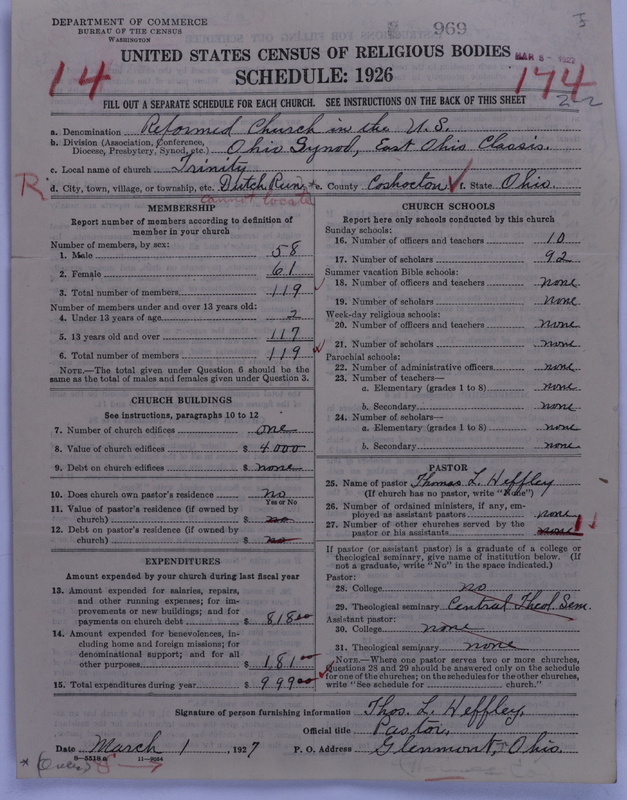 DEPARTMENT OF COMMERCE
BUREAU OF THE CENSUS
WASHINGTON
969
UNITED STATES CENSUS OF RELIGIOUS BODIES
MAR 8 - 1927
SCHEDULE: 1926
14
174
FILL OUT A SEPARATE SCHEDULE FOR EACH CHURCH. SEE INSTRUCTIONS ON THE BACK OF THIS SHEET
a. Denomination Reformed Church in the U.S.
b. Division (Association, Conference, Diocese, Presbytery, Synod, etc.) Ohio Synod, East Ohio Classis.
c. Local name of church Trinity
R
d. City, town, village, or township, etc. Dutch Run * e. County Coshocton f. State Ohio.
cannot locate
MEMBERSHIP
Report number of members according to definition of
member in your church
Number of members, by sex:
1. Male 58
2. Female 61
3. Total number of members 119
Number of members under and over 13 years old:
4. Under 13 years of age 2
5. 13 years old and over 117
6. Total number of members 119
NOTE.—The total given under Question 6 should be
same as the total of males and females given under Question 3.
CHURCH BUILDINGS
See instructions, paragraphs 10 to 12
7. Number of church edifices one
8. Value of church edifices $ 4000
9. Debt on church edifices $ none
10. Does church own pastor's residence no
Yes or No
11. Value of pastor's residence (if owned by
church) $ no
12. Debt on pastor's residence (if owned by
church) $ no
EXPENDITURES
Amount expended by your church during last fiscal year
13. Amount expended for salaries, repairs,
and other running expenses; for im-
provements or new buildings; and for
payments on church debt $ 818.00
14. Amount expended for benevolences, in-
cluding home and foreign missions; for
denominational support; and for all
other purposes $ 181.00
15. Total expenditures during year $ 999.00
CHURCH SCHOOLS
Report here only schools conducted by this church
Sunday schools:
16. Number of officers and teachers 10
17. Number of scholars 92
Summer vacation Bible schools:
18. Number of officers and teachers none
19. Number of scholars none
Week-day religious schools:
20. Number of officers and teachers none
21. Number of scholars none
Parochial schools:
22. Number of administrative officers none
23. Number of teachers—
a. Elementary (grades 1 to 8) none
b. Secondary none
24. Number of scholars—
a. Elementary (grades 1 to 8) none
b. Secondary none
PASTOR
25. Name of pastor Thomas L. Heffley
(If church has no pastor, write "None")
26. Number of ordained ministers, if any, em-
ployed as assistant pastors none
27. Number of other churches served by the
pastor or his assistants none 1
If pastor (or assistant pastor) is a graduate of a college or
theological seminary, give name of institution below. (If
not a graduate, write "No" in the space indicated.)
Pastor:
28. College no
29. Theological seminary Central Theol. Sem.
Assistant pastor:
30. College none
31. Theological seminary none
NOTE.—Where one pastor serves two or more churches,
Questions 28 and 29 should be answered only on the schedule
for one of the churches; on the schedules for the other churches,
write "See schedule for church."
Signature of person furnishing information Thos. L. Heffley,
Official title Pastor,
Date March 1, 1927 P. O. Address Glenmont, Ohio.
* (Over)
8—5518a 11—9064